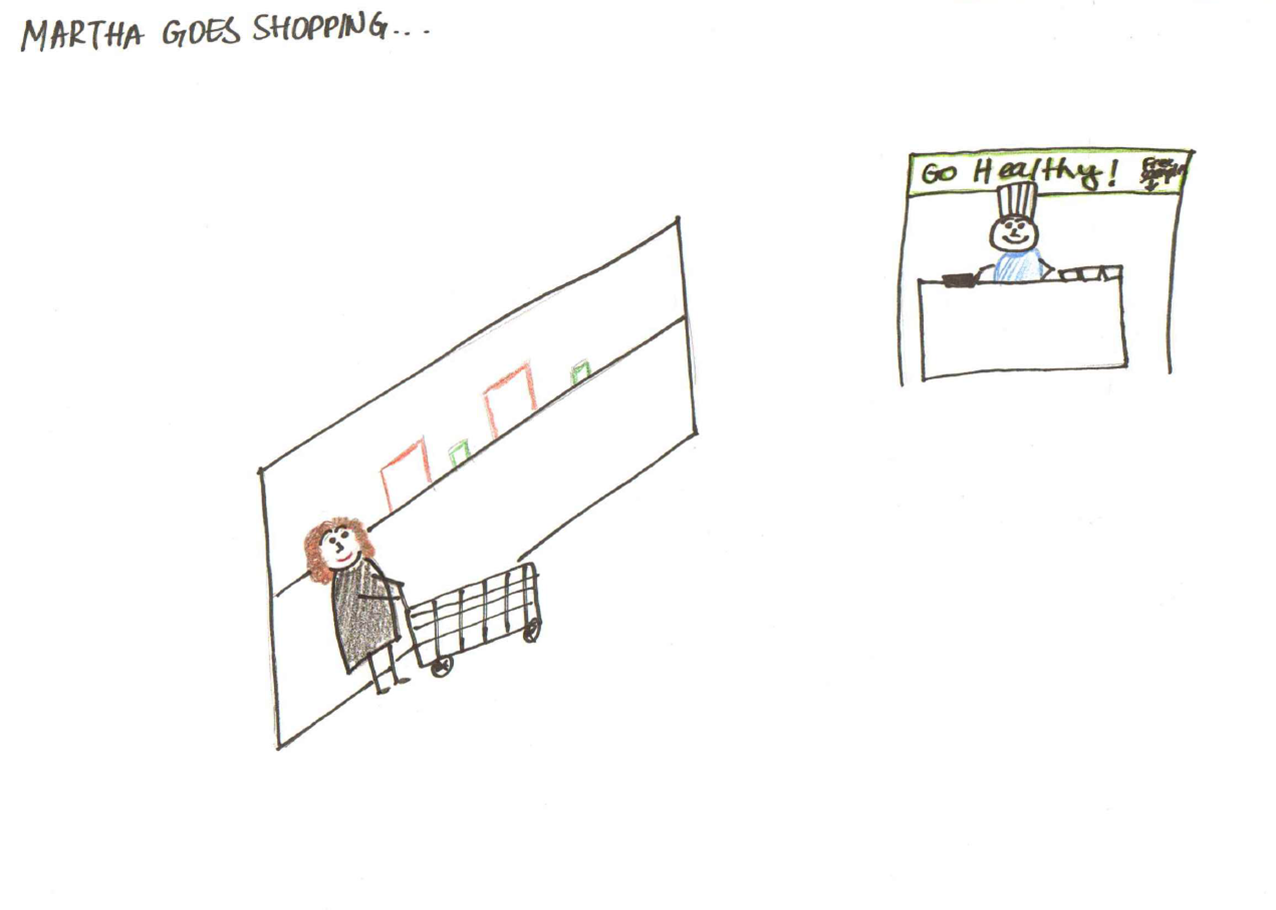 MARTHA GOES SHOPPING...
Go Healthy!
Free